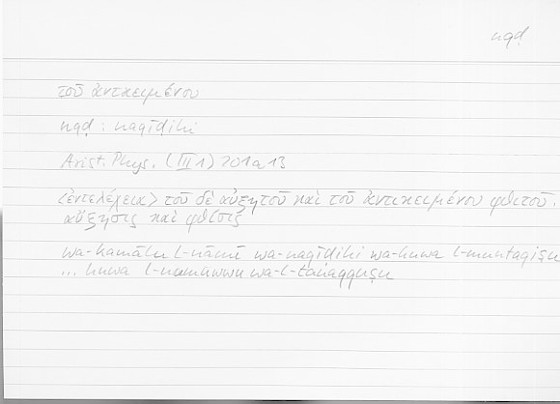 nqḍ
τοῦ ἀντικειμένου
nqḍ : naqīḍihi
Arist. Phys. (III 1) 201a13
<ἐντελέχεια> τοῦ δὲ αὐξητοῦ καὶ τοῦ ἀντικειμένου φθιτοῦ.
αὔξησις καὶ φθίσις
wa-kamālu l-nāmī wa-naqīḍihi wa-huwa l-muntaqiṣu
... huwa l-numuwwu wa-l-tanaqquṣu